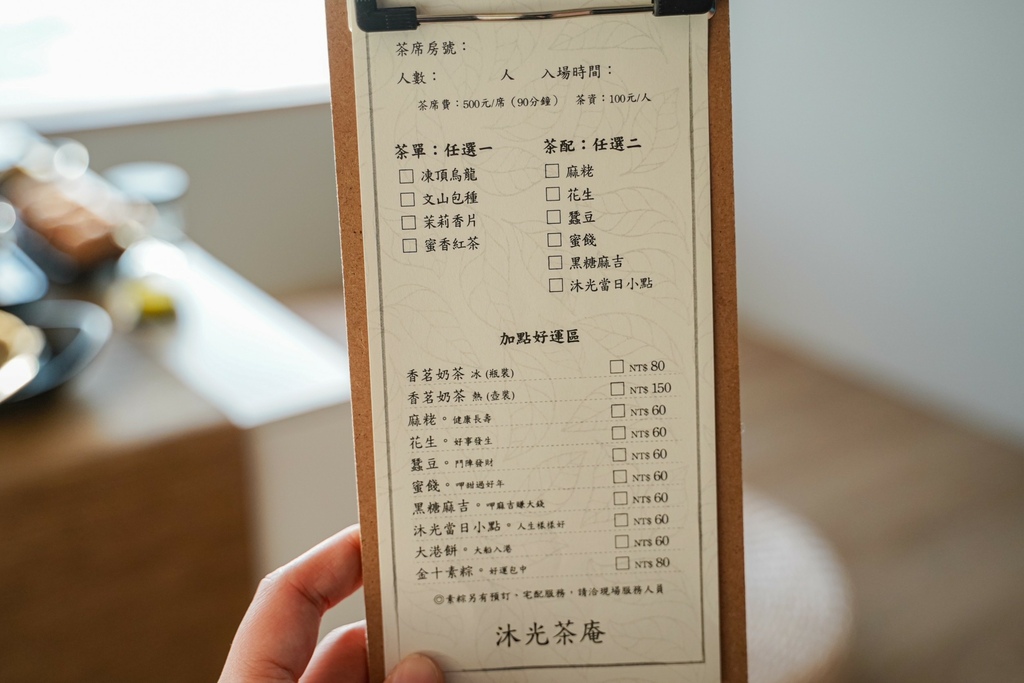 茶席房號：
人數：　　人　入場時間：
茶席費：500元/席（90分鐘）　茶資：100元/人
茶單：任選一
□ 凍頂烏龍
□ 文山包種
□ 茉莉香片
□ 蜜香紅茶
茶配：任選二
□ 麻粩
□ 花生
□ 蠶豆
□ 蜜餞
□ 黑糖麻吉
□ 沐光當日小點
加點好運區
香茗奶茶 冰 (瓶裝) □ NT$ 80
香茗奶茶 熱 (壺裝) □ NT$ 150
麻粩。健康長壽 □ NT$ 60
花生。好事發生 □ NT$ 60
蠶豆。鬥陣發財 □ NT$ 60
蜜餞。呷甜過好年 □ NT$ 60
黑糖麻吉。呷麻吉賺大錢 □ NT$ 60
沐光當日小點。人生樣樣好 □ NT$ 60
大港餅。大船入港 □ NT$ 60
金十素粽。好運包中 □ NT$ 80
◎素粽另有預訂、宅配服務，請洽現場服務人員
沐光茶庵